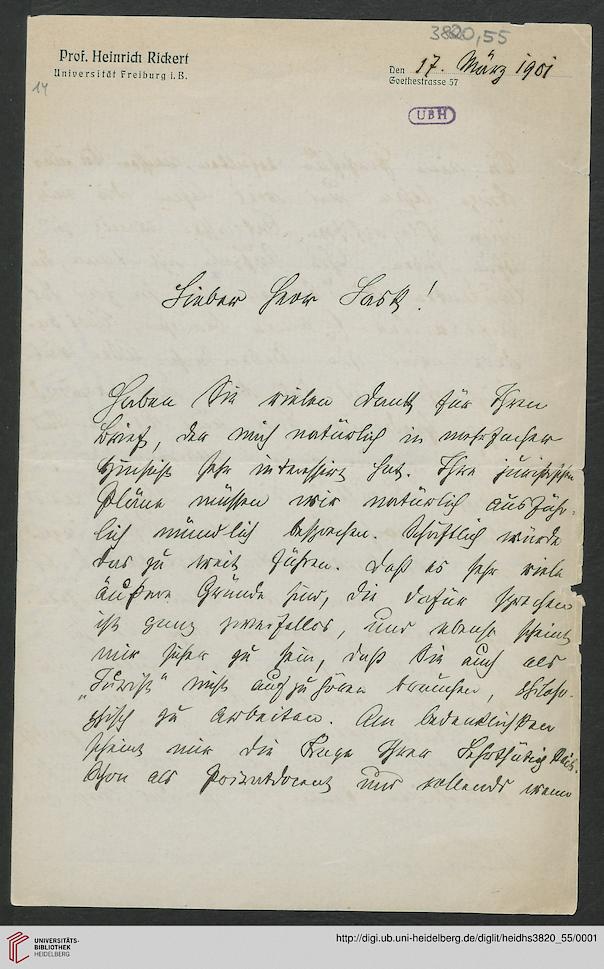 3820,55
Prof. Heinrich Rickert
Universität Freiburg i. B.
Den 17. März 1901
Goethestrasse 57
14
UBH
Lieber Herr Lask!
Haben Sie vielen Dank für Ihren
Brief, der mich natürlich in mehrfacher
Hinsicht sehr interessirt hat. Ihre juristischen
Pläne müssen wir natürlich ausführ-
lich mündlich besprechen. Schriftlich würde
das zu weit führen. Daß es sehr viele
äußere Gründe sind, die dafür sprechen
ist ganz zweifellos, und ebenso scheint
mir sicher zu sein, daß Sie auch als
„Jurist" nicht aufzuhören brauchen, philoso-
phisch zu arbeiten. Am bedenklichsten
scheint mir die Frage Ihrer Lehrthätigkeit.
Schon als Privatdocent und vollends wenn
UNIVERSITÄTS-
BIBLIOTHEK
HEIDELBERG
http://digi.ub.uni-heidelberg.de/diglit/heidhs3820_55/0001